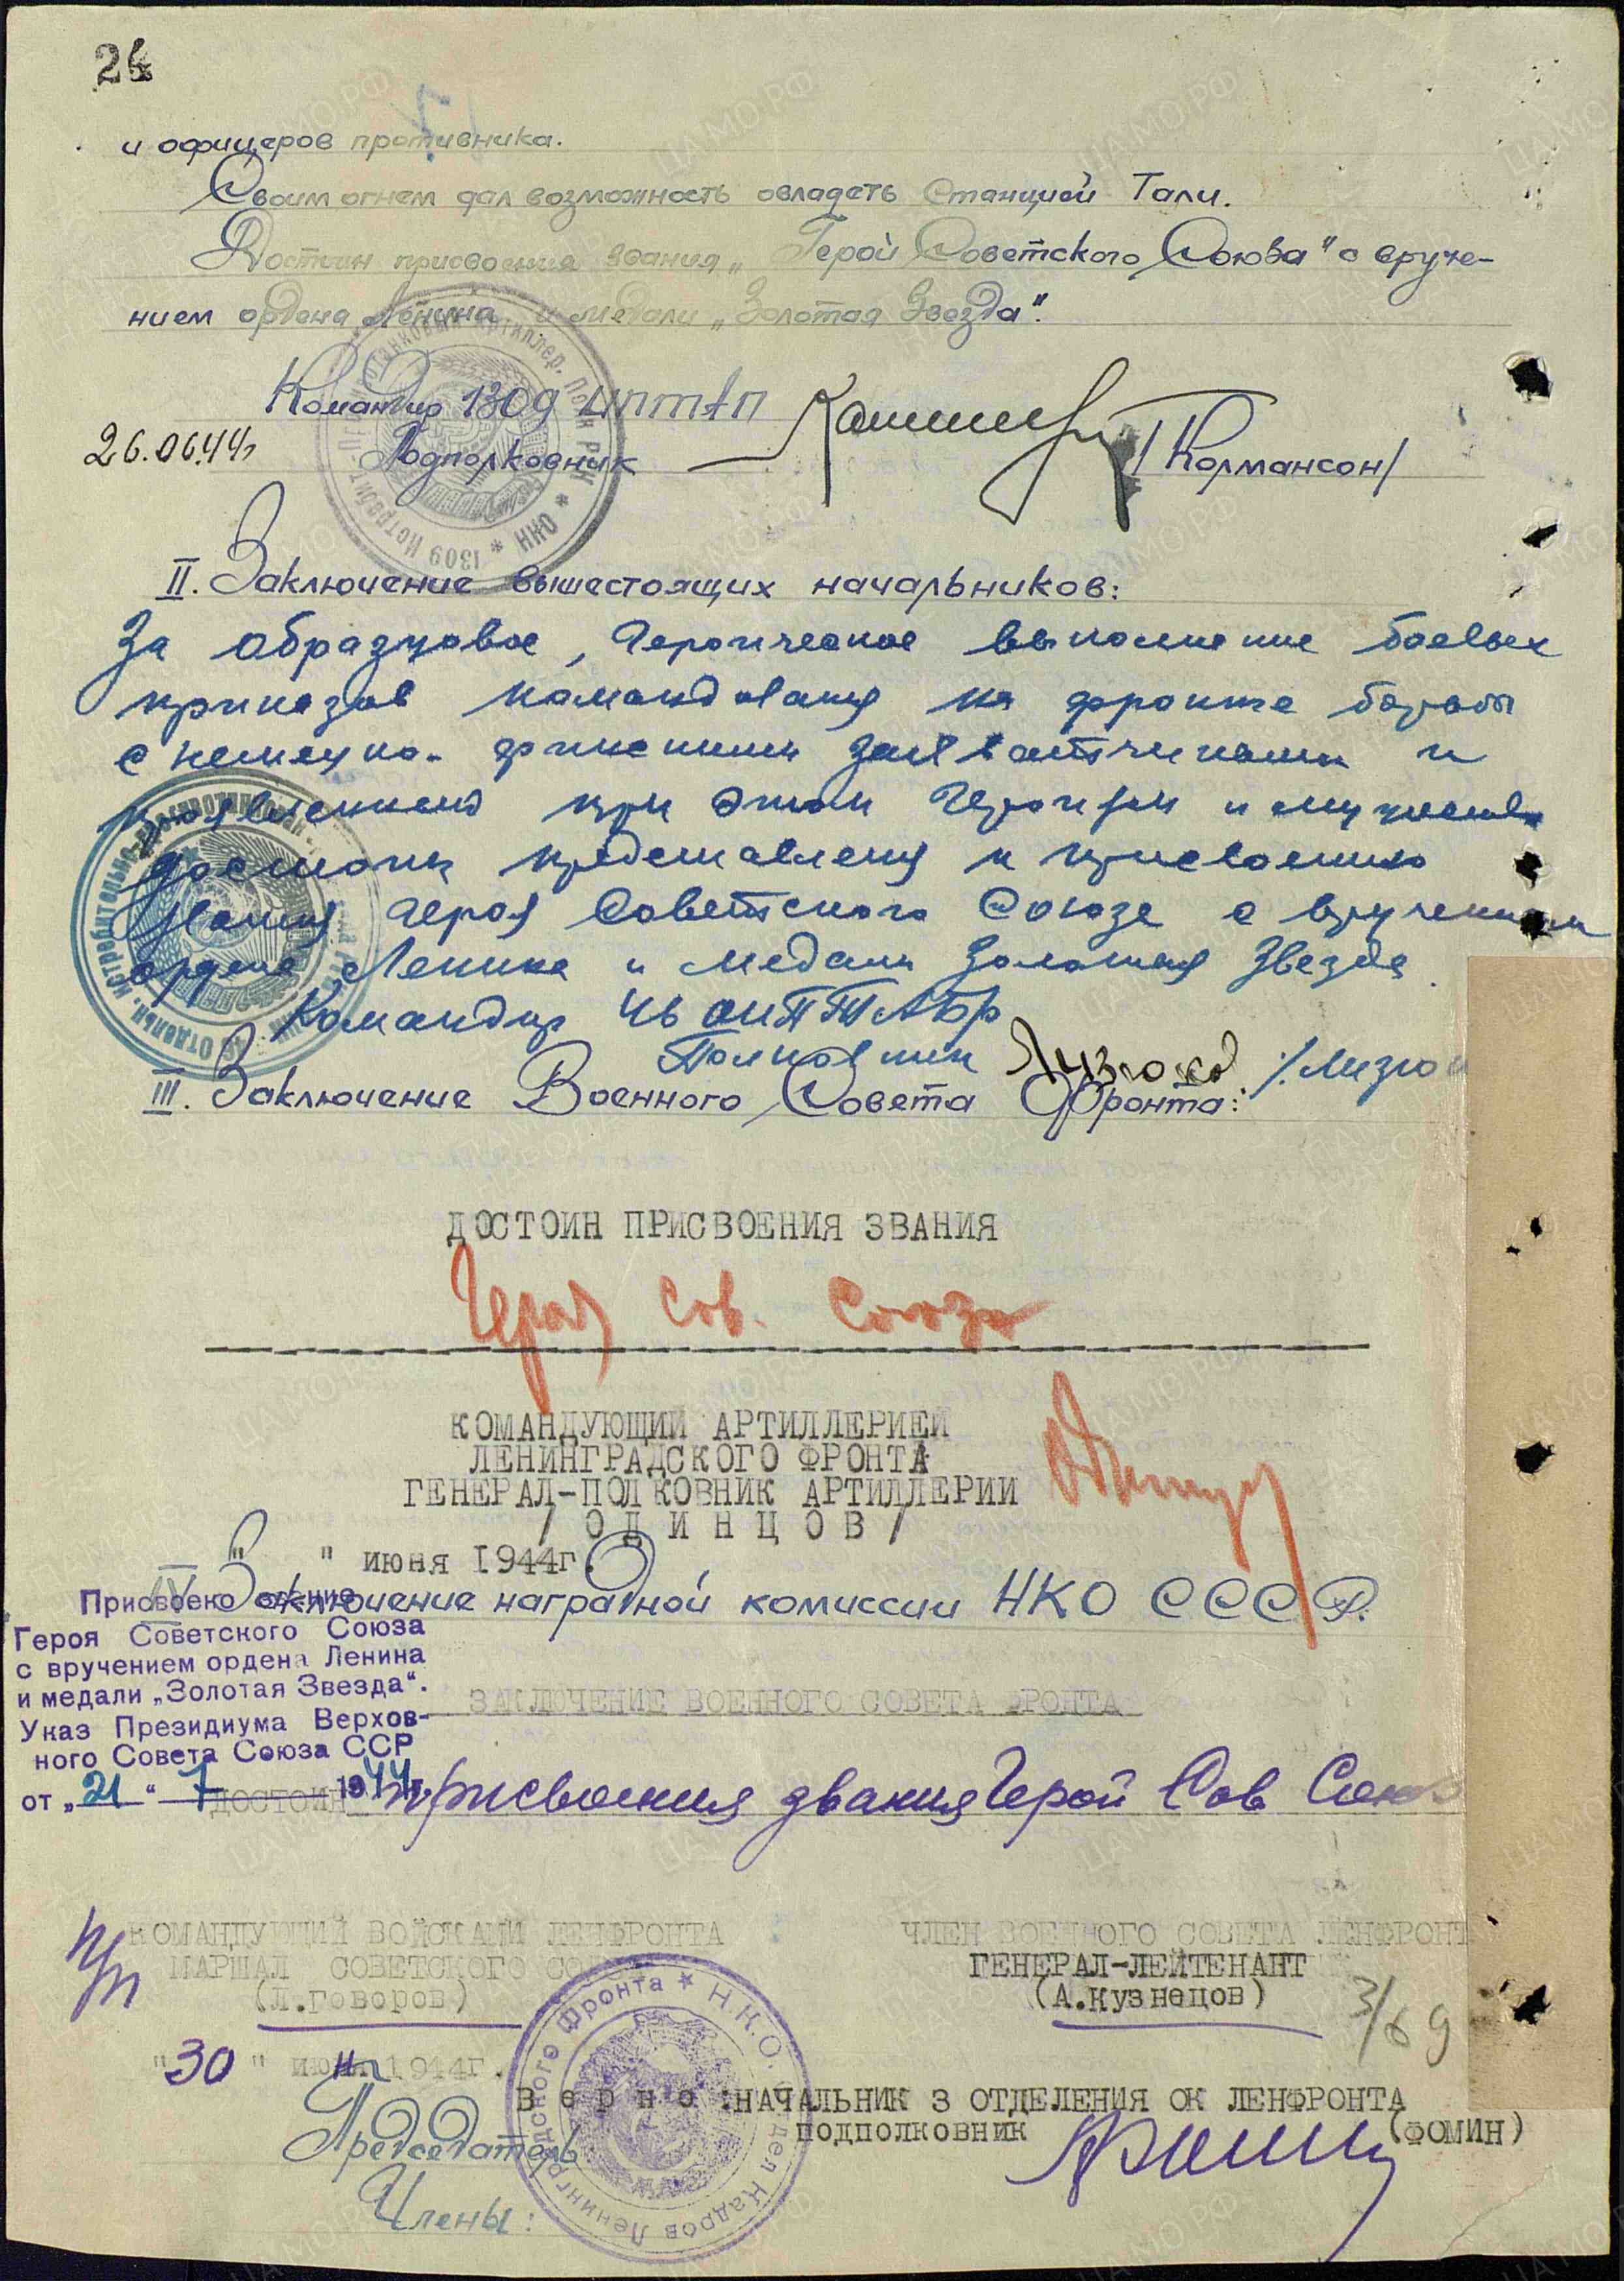 24
и офицеров противника.
Своим огнем дал возможность овладеть Станцией Тали.
Достоин присвоения звания „Герой Советского Союза" с вруче-
нием ордена Ленина и медали „Золотая Звезда".
Командир 1309 иптап
26.06.44г Подполковник /Кормансон/
II. Заключение вышестоящих начальников:
За образцовое, героическое выполнение боевых
приказов командования на фронте борьбы
с немецко-финскими захватчиками и
проявленные при этом героизм и мужество
достоин представления к присвоению
звания Героя Советского Союза с вручением
ордена Ленина и медали Золотая Звезда.
Командир 46 оиптабр
Полковник
III. Заключение Военного Совета Фронта:
ДОСТОИН ПРИСВОЕНИЯ ЗВАНИЯ
Героя Сов. Союза
КОМАНДУЮЩИЙ АРТИЛЛЕРИЕЙ
ЛЕНИНГРАДСКОГО ФРОНТА
ГЕНЕРАЛ-ПОЛКОВНИК АРТИЛЛЕРИИ
/ОДИНЦОВ/
" " июня 1944г.
IV Заключение наградной комиссии НКО СССР.
Присвоено звание
Героя Советского Союза
с вручением ордена Ленина
и медали „Золотая Звезда".
Указ Президиума Верхов-
ного Совета Союза ССР
от „21" 7 1944г.
ЗАКЛЮЧЕНИЕ ВОЕННОГО СОВЕТА ФРОНТА
ДОСТОИН присвоения звания Герой Сов Союз
КОМАНДУЮЩИЙ ВОЙСКАМИ ЛЕНФРОНТА
МАРШАЛ СОВЕТСКОГО
(Л.Говоров)
ЧЛЕН ВОЕННОГО СОВЕТА ЛЕНФРОНТ
ГЕНЕРАЛ-ЛЕЙТЕНАНТ
(А.Кузнецов)
"30" 1944г.
Верно: НАЧАЛЬНИК 3 ОТДЕЛЕНИЯ ОК ЛЕНФРОНТА
ПОДПОЛКОВНИК (ФОМИН)
Председатель
Члены: